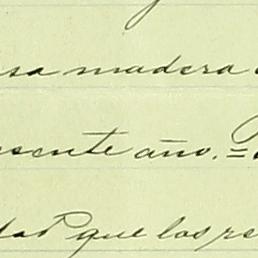 sa madera
esente año. =
dad que los re